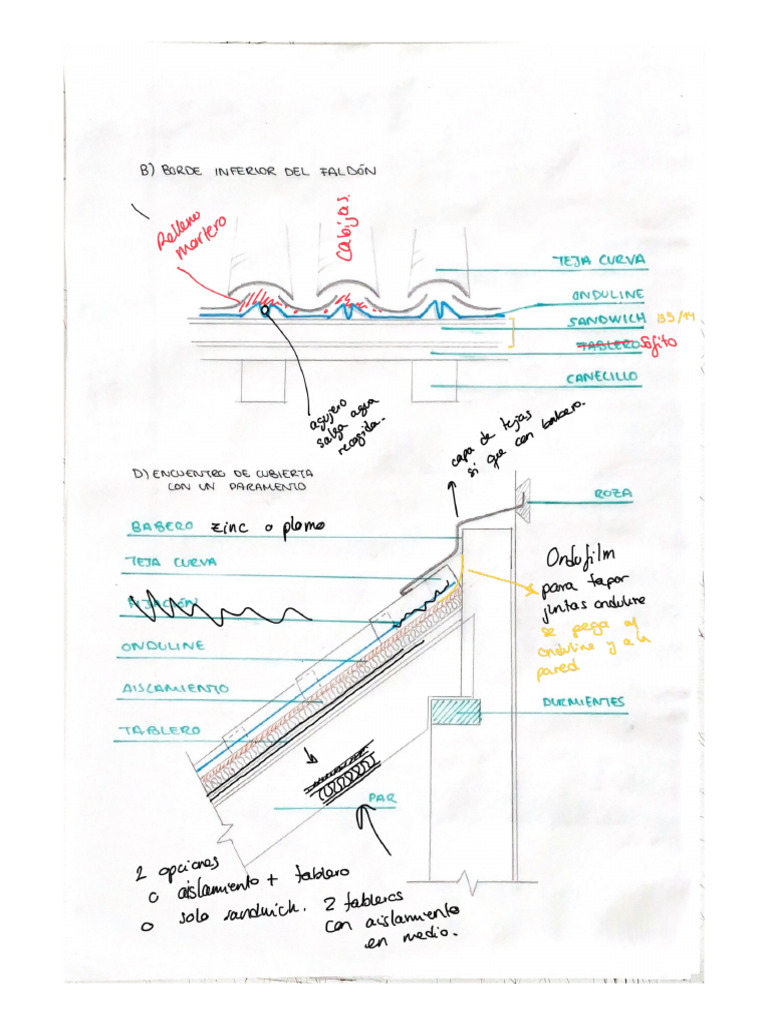 B) BORDE INFERIOR DEL FALDÓN
Relleno
mortero
Cabijas.
TEJA CURVA
ONDULINE
SANDWICH
TABLERO Sofito
CANECILLO
agujero
salga agua
recogida.
capa de tejas
si que can babero.
D) ENCUENTRO DE CUBIERTA
CON UN PARAMENTO
ROZA
BABERO zinc o plomo
TEJA CURVA
FIJACIÓN
ONDULINE
AISLAMIENTO
TABLERO
Ondufilm
para tapar
juntas onduline
se pega al
onduline y a la
pared
DURMIENTES
PAR
2 opciones
o aislamiento + tablero
o solo sandwich. 2 tableros
con aislamiento
en medio.